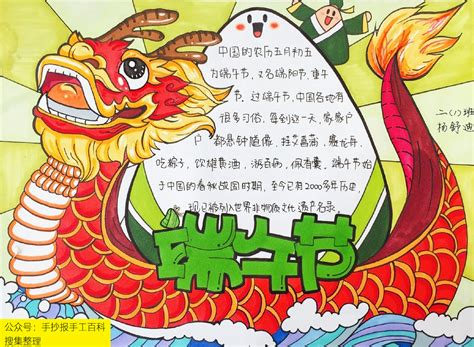 中国的农历五月初五
为端午节,又名端阳节、重午
节。过端午节,中国各地有
很多习俗,每到这一天,家家户
户都悬钟馗像,挂艾菖蒲、赛龙舟、
吃粽子、饮雄黄酒、游百病、佩香囊,端午节始
于中国的春秋战国时期,至今已有2000多年历史,
现已被列入世界非物质文化遗产名录
二(八)班
杨舒迪
端午节
公众号:手抄报手工百科
搜集整理